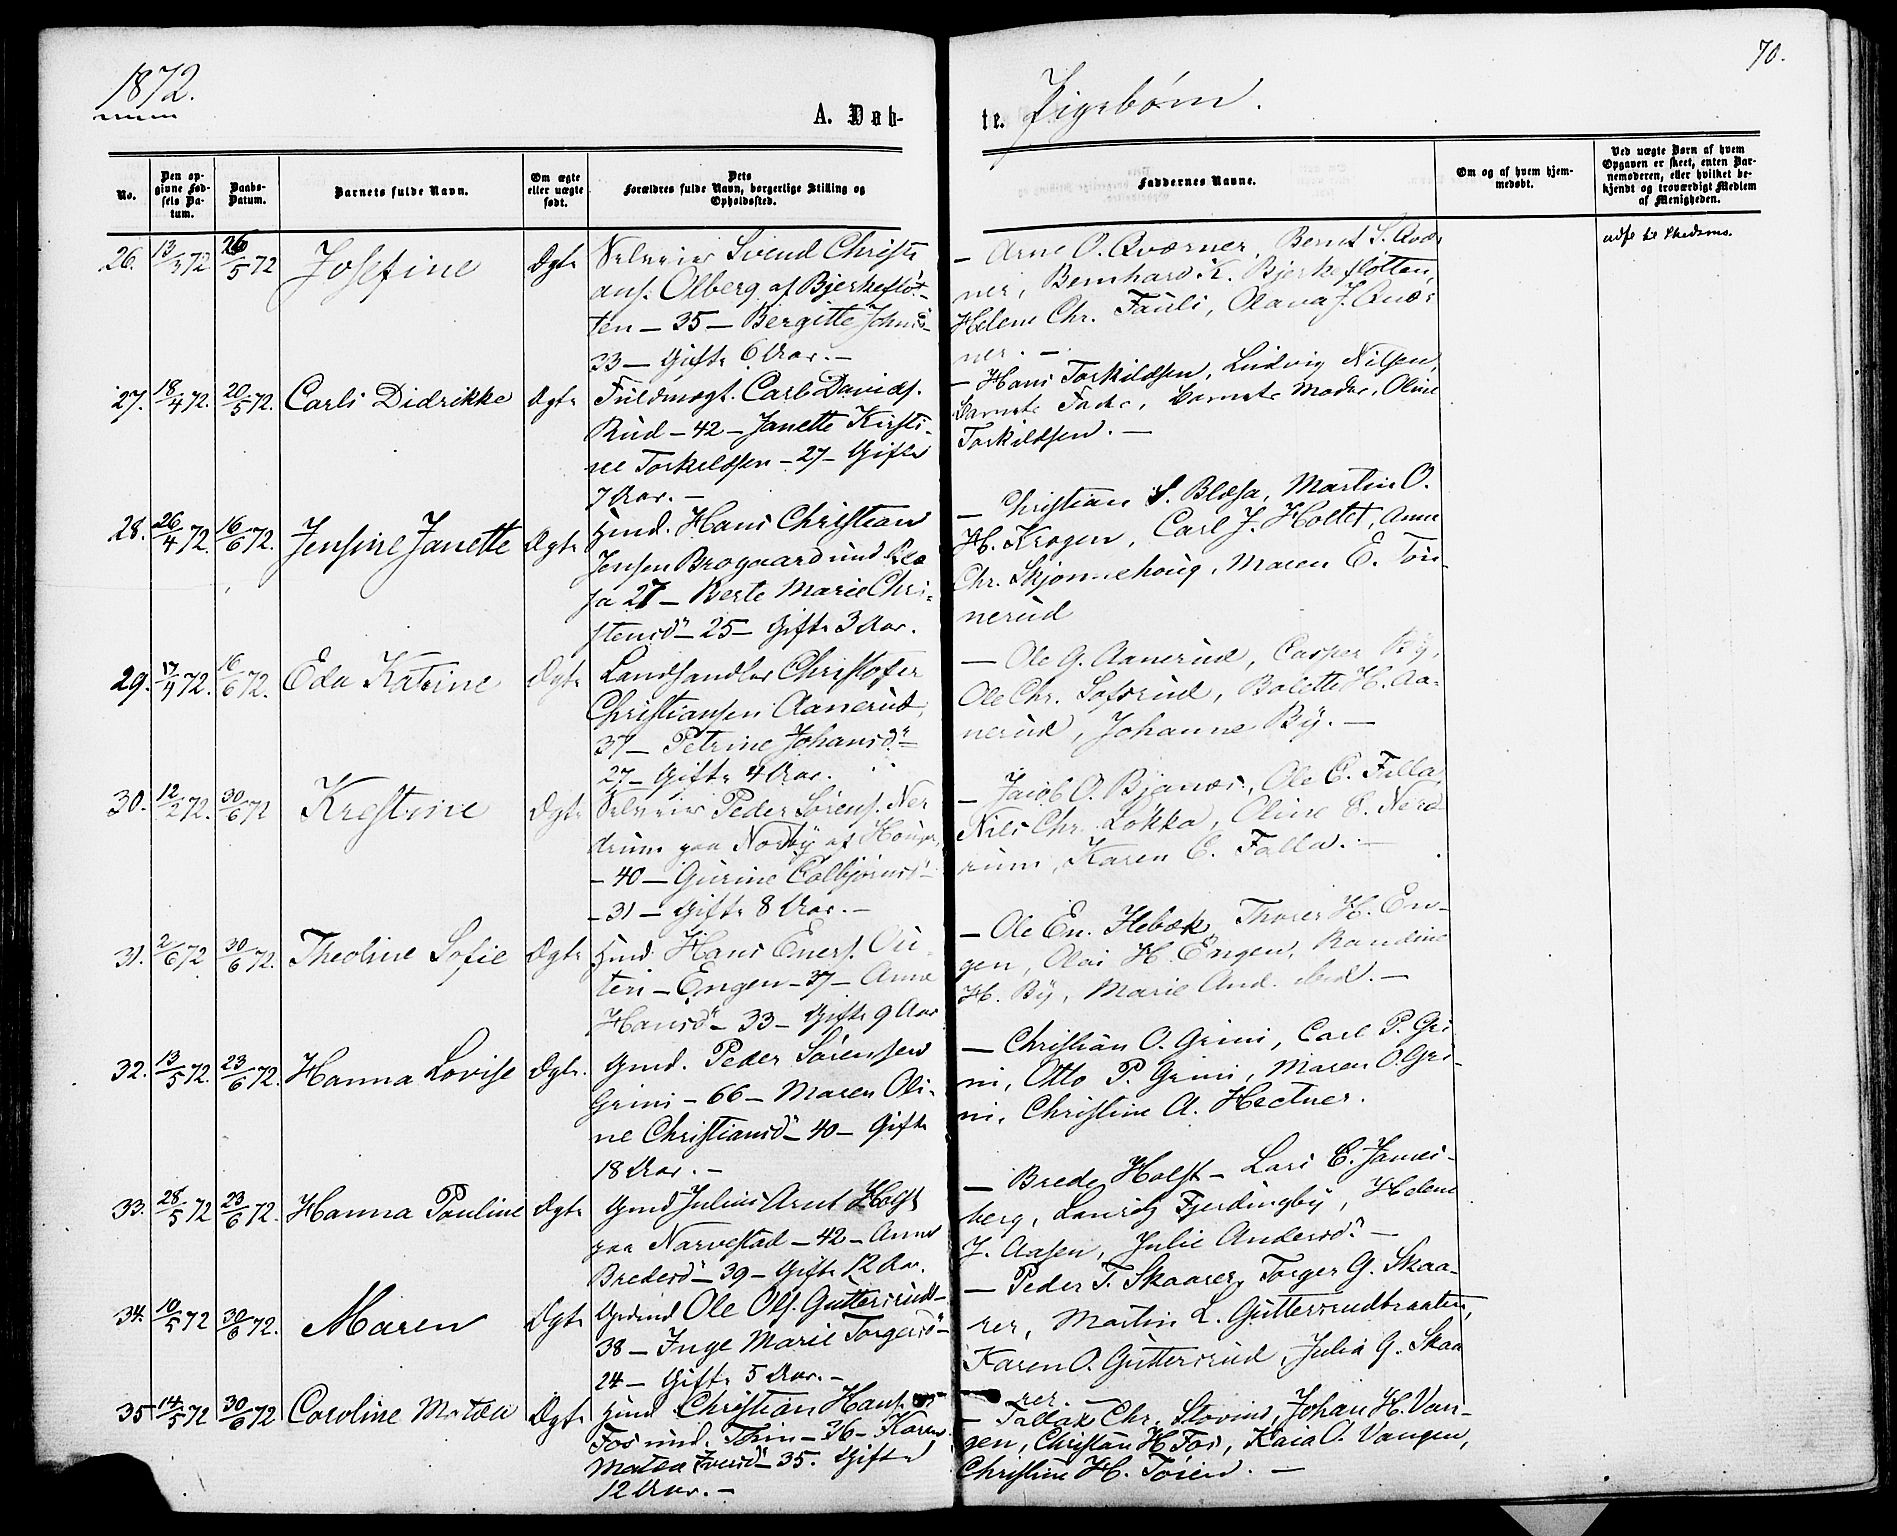 1872.
A. Døb-
te. Pigebørn.
70.
No.
Den op-
givne Fød-
sels Da-
tum.
Daabs-
Datum.
Barnets fulde Navn.
Om ægte
eller uægte
født.
Dets
Forældres fulde Navn, borgerlige Stilling og
Opholdssted.
Faddernes Navne.
Om og af hvem hjem-
medøbt.
Ved uægte Børn af hvem
Opgaven er skeet, enten Bar-
nemoderen, eller hvilket be-
kjendt og troværdigt Medlem
af Menigheden.
26. 13/3 72 26/5 72 Josefine Ægte
Selveier Svend Christi
ans. Olberg af Bjerkefløt-
ten — 35 — Bergitte Johns-
33 — Gifte 6 Aar. —
— Arne O. Qværner, Bernt S. Qvær
ner, Bernhard K. Bjerkefløtten,
Helene Chr. Fauli, Olava J. Qvær
ner. —
27. 18/4 72. 20/5 72. Carli Didrikke Ægte
Fuldmægt. Carl Davids.
Rud — 42 — Janette Kirsti-
ne Torkildsen — 27 — Gifte
7 Aar. —
— Hans Torkildsen, Ludvig Nilsen,
Barnets Fader, Barnets Moder, Oline
Torkildsen. —
28. 26/4 72. 16/6 72. Jensine Janette Ægte
Hmd. Hans Christian
Jensen Brogaard und. Blæ
sa 27 — Berte Marie Chri-
stensd — 25 — Gifte 3 Aar.
— Christian S. Blæsa, Martin O.
H. Krogen, Carl J. Holtet, Anne
Chr. Skjønnehoug, Maren E. Tøn-
nerud
29. 17/4 72. 16/6 72. Eda Katrine Ægte
Landhandler Christofer
Christiansen Aanerud,
37 — Petrine Johansd —
27 — Gifte 4 Aar.
— Ole G. Aanerud, Casper By,
Ole Chr. Lofsrud, Bolette H. Aa-
nerud, Johanne By. —
30. 12/2 72. 30/6 72 Krestine Ægte
Selveier Peder Sørens. Ner
drum paa Nordby af Houger,
— 40 — Gurine Colbjørnsd —
— 31 — Gifte 8 Aar. —
— Jacob O. Bjanes, Ole E. Falla
Nils Chr. Løkka, Oline E. Nerd
rum, Karen E. Falla. —
31. 2/6 72 30/6 72. Theoline Sofie Ægte
Hmd. Hans Eners. Ou-
teri — Engen — 37 — Anne
Hansd — 33 — Gifte 9 Aar
— Ole En. Hebæk, Thorer H. En-
gen, Olai H. Engen, Randine
H. By, Marie And. ibid. —
32. 13/5 72. 23/6 72. Hanna Lovise Ægte.
Gmd. Peder Sørensen
Grini — 66 — Maren Oli-
ne Christiansd — 40 — Gifte
18 Aar. —
— Christian O. Grini, Carl P. Gri
ni, Otto P. Grini, Maren O. Gri-
ni, Christine A. Hectner.
33. 28/5 72 23/6 72. Hanna Pauline Ægte
Gmd Julius Arnt Holst
paa Narvestad — 42 — Anne
Bredesd — 39 — Gifte 12 Aar.
— Brede Holst — Lars E. James-
berg, Lauritz Fjerdingby, Helene
J. Aasen, Julie Andersd. —
34. 10/5 72 30/6 72. Maren Ægte
Ole Ols. Guttersrud —
38 — Inge Marie Torgersd —
24 — Gifte 5 Aar. —
— Peder T. Skaarer, Torger G. Skaa-
rer, Martin L. Guttersrudbraaten,
Karen O. Guttersrud, Julia G. Skaa
rer. —
35 14/5 72 30/6 72 Caroline Matea Ægte
Hmd Christian Hans.
Fos und. Thin — 36 — Karen
Matea Iversd — 35. Gifte
12 Aar. —
— Tallak Chr. Stovind, Johan H. Van-
gen, Christian H Fos, Kaia O. Vangen,
Christine H. Tøien. —